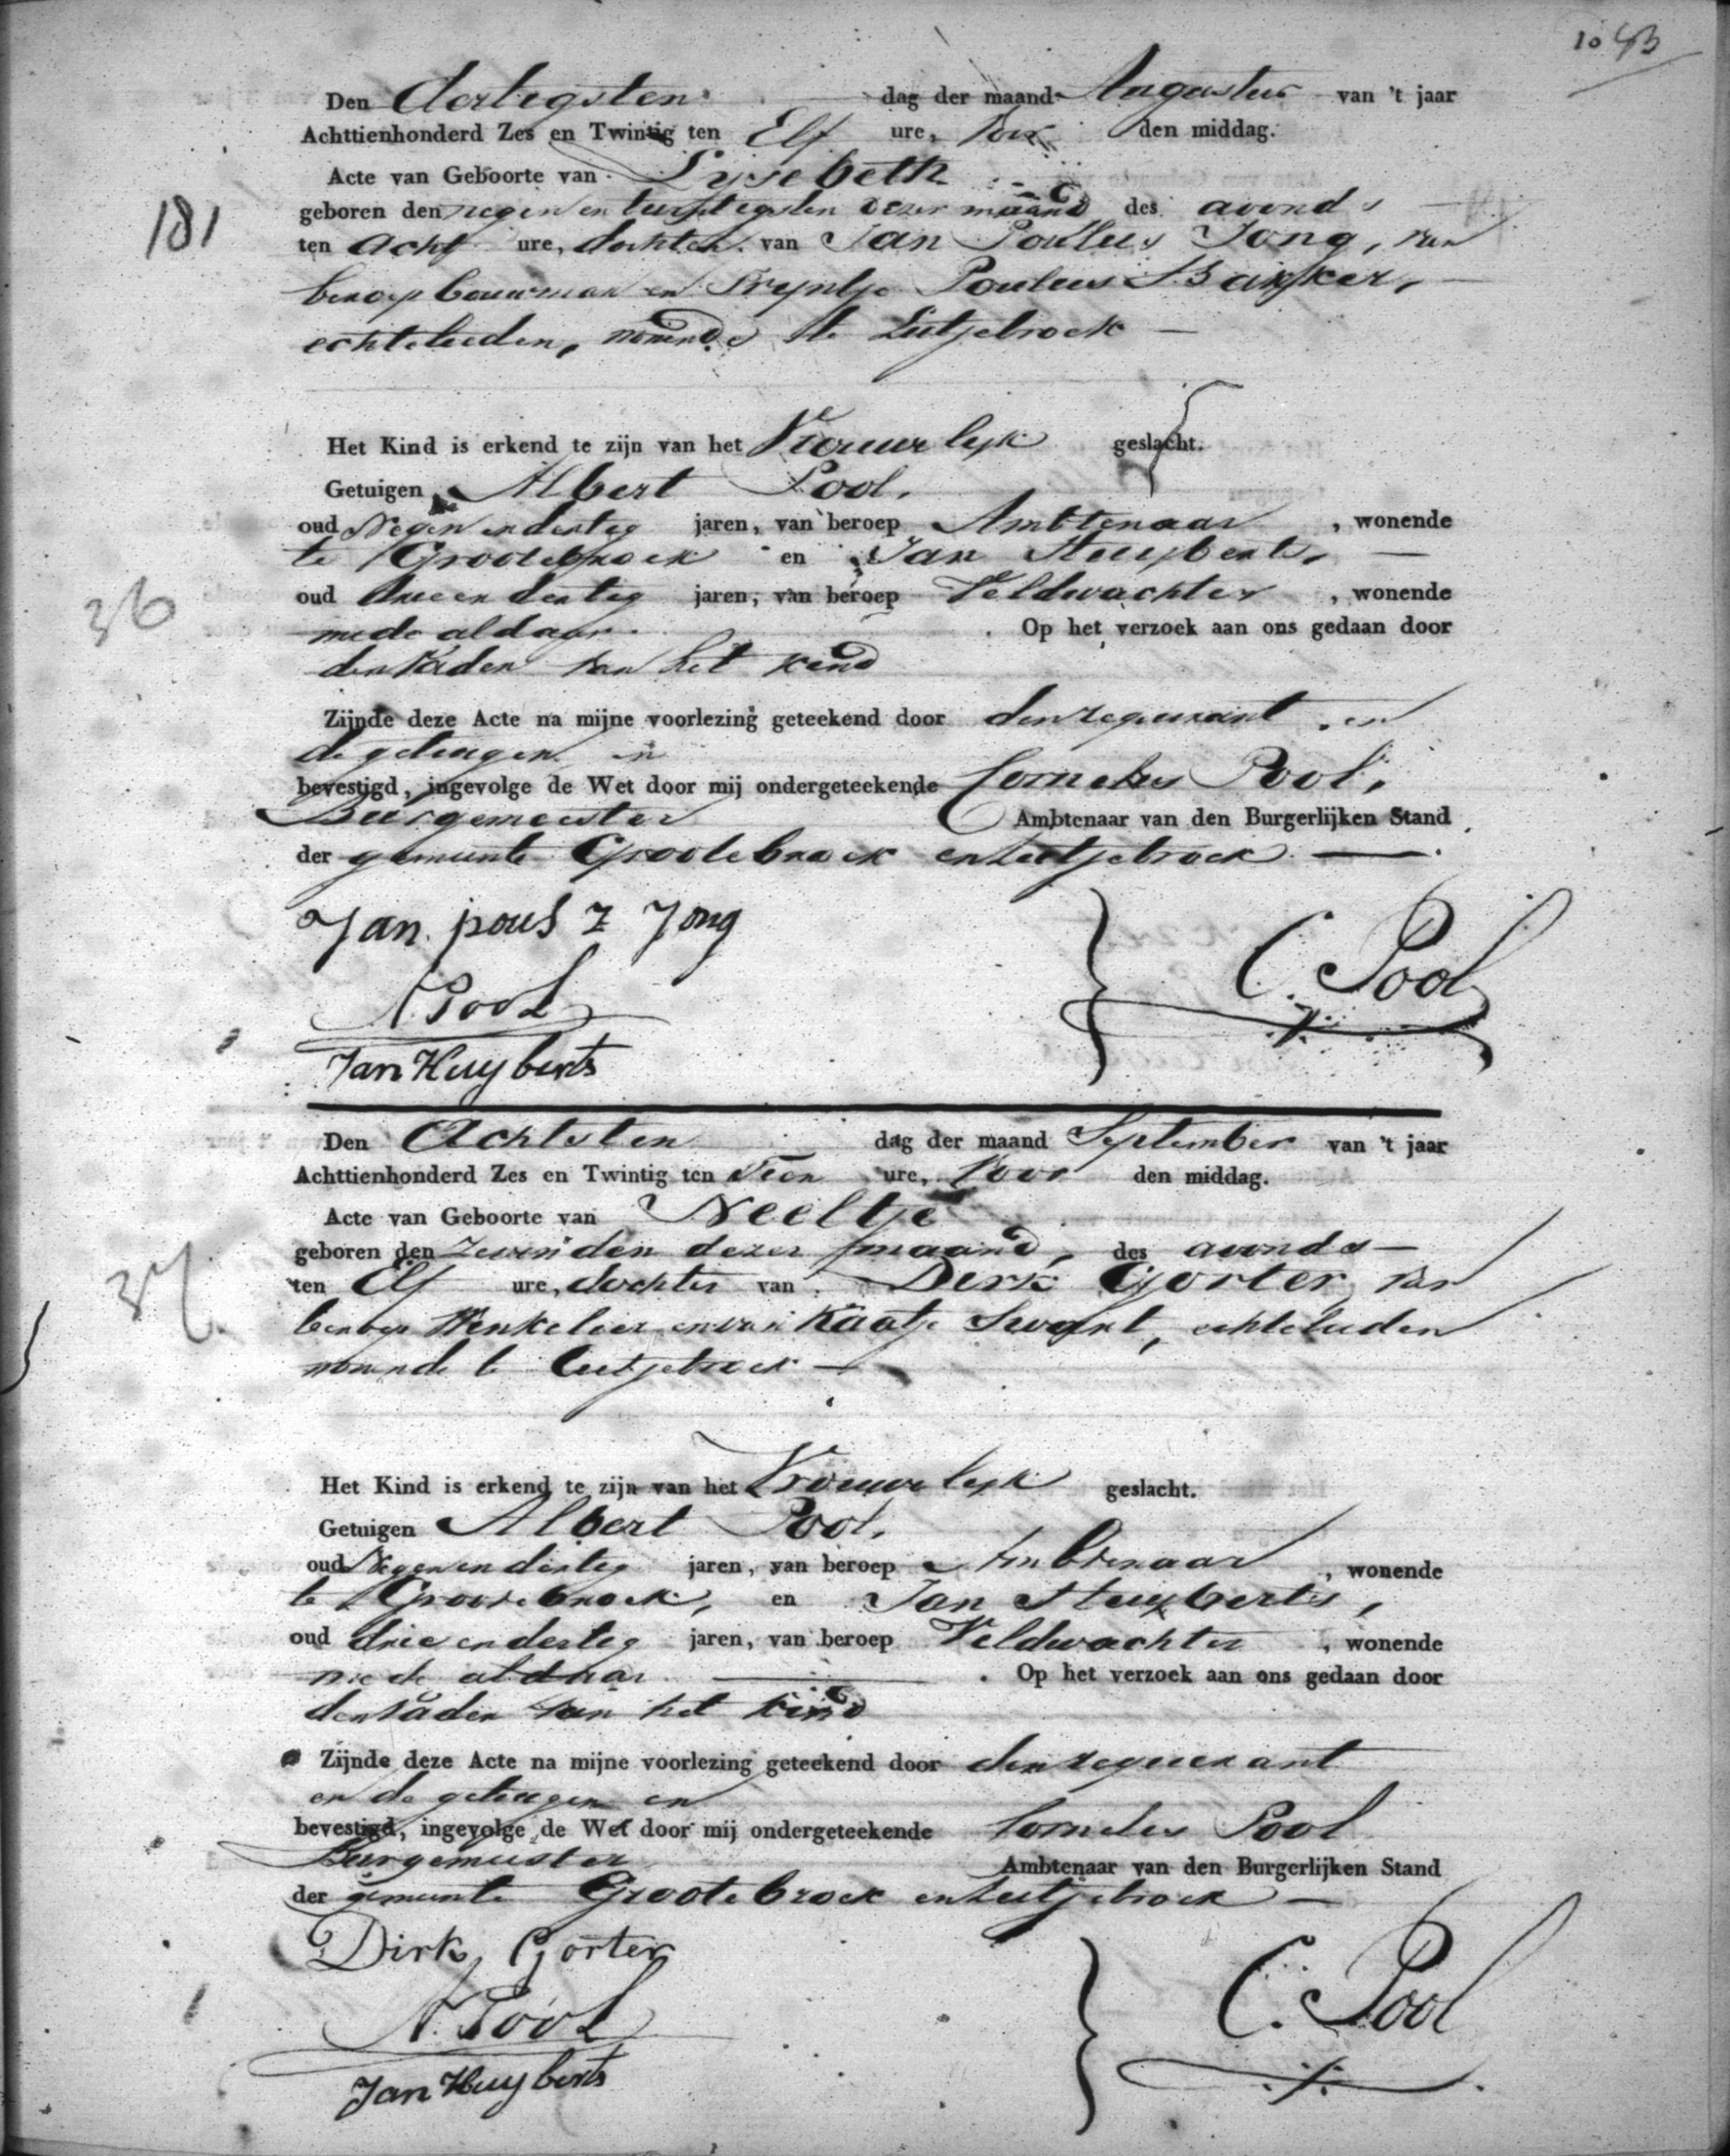 10 43
Den dertigsten dag der maand Augustus van 't jaar
Achttienhonderd Zes en Twintig ten Elf ure, Voor den middag.
Acte van Geboorte van Lysebeth
geboren den negen en twintigsten dezer maand des avonds
181
ten acht ure, dochter van Jan Poulus Jong, van
beroep bouwman en Tryntje Poulus Bakker,
echtelieden, wonende te Lutjebroek
Het Kind is erkend te zijn van het Vrouwelyk geslacht.
Getuigen Albert Pool,
oud Negen en dertig jaren, van beroep Ambtenaar, wonende
te Grootebroek en Jan Huyberts,
36
oud drie en dertig jaren, van beroep Veldwachter, wonende
mede aldaar. Op het verzoek aan ons gedaan door
den Vader van het kind
Zijnde deze Acte na mijne voorlezing geteekend door den requirant en
de getuigen en
bevestigd, ingevolge de Wet door mij ondergeteekende Cornelis Pool,
Burgemeester Ambtenaar van den Burgerlijken Stand
der gemeente Grootebroek en Lutjebroek
Jan pous z Jong
A. Pool
C. Pool
Jan Huyberts
Den Achtsten dag der maand September van 't jaar
Achttienhonderd Zes en Twintig ten Tien ure, Voor den middag.
Acte van Geboorte van Neeltje
geboren den zevenden dezer maand, des avonds
37
ten Elf ure, dochter van Derk Gorter, van
beroep Winkelier en van Kaatje Swart, echtelieden
wonende te Lutjebroek
Het Kind is erkend te zijn van het Vrouwelyk geslacht.
Getuigen Albert Pool,
oud Negen en dertig jaren, van beroep Ambtenaar, wonende
te Grootebroek, en Jan Huyberts,
oud drie en dertig jaren, van beroep Veldwachter, wonende
mede aldaar. Op het verzoek aan ons gedaan door
den Vader van het kind
Zijnde deze Acte na mijne voorlezing geteekend door den requirant
en de getuigen en
bevestigd, ingevolge de Wet door mij ondergeteekende Cornelis Pool
Burgemeester Ambtenaar van den Burgerlijken Stand
der gemeente Grootebroek en Lutjebroek
Dirk Gorter
A. Pool
C. Pool
Jan Huyberts